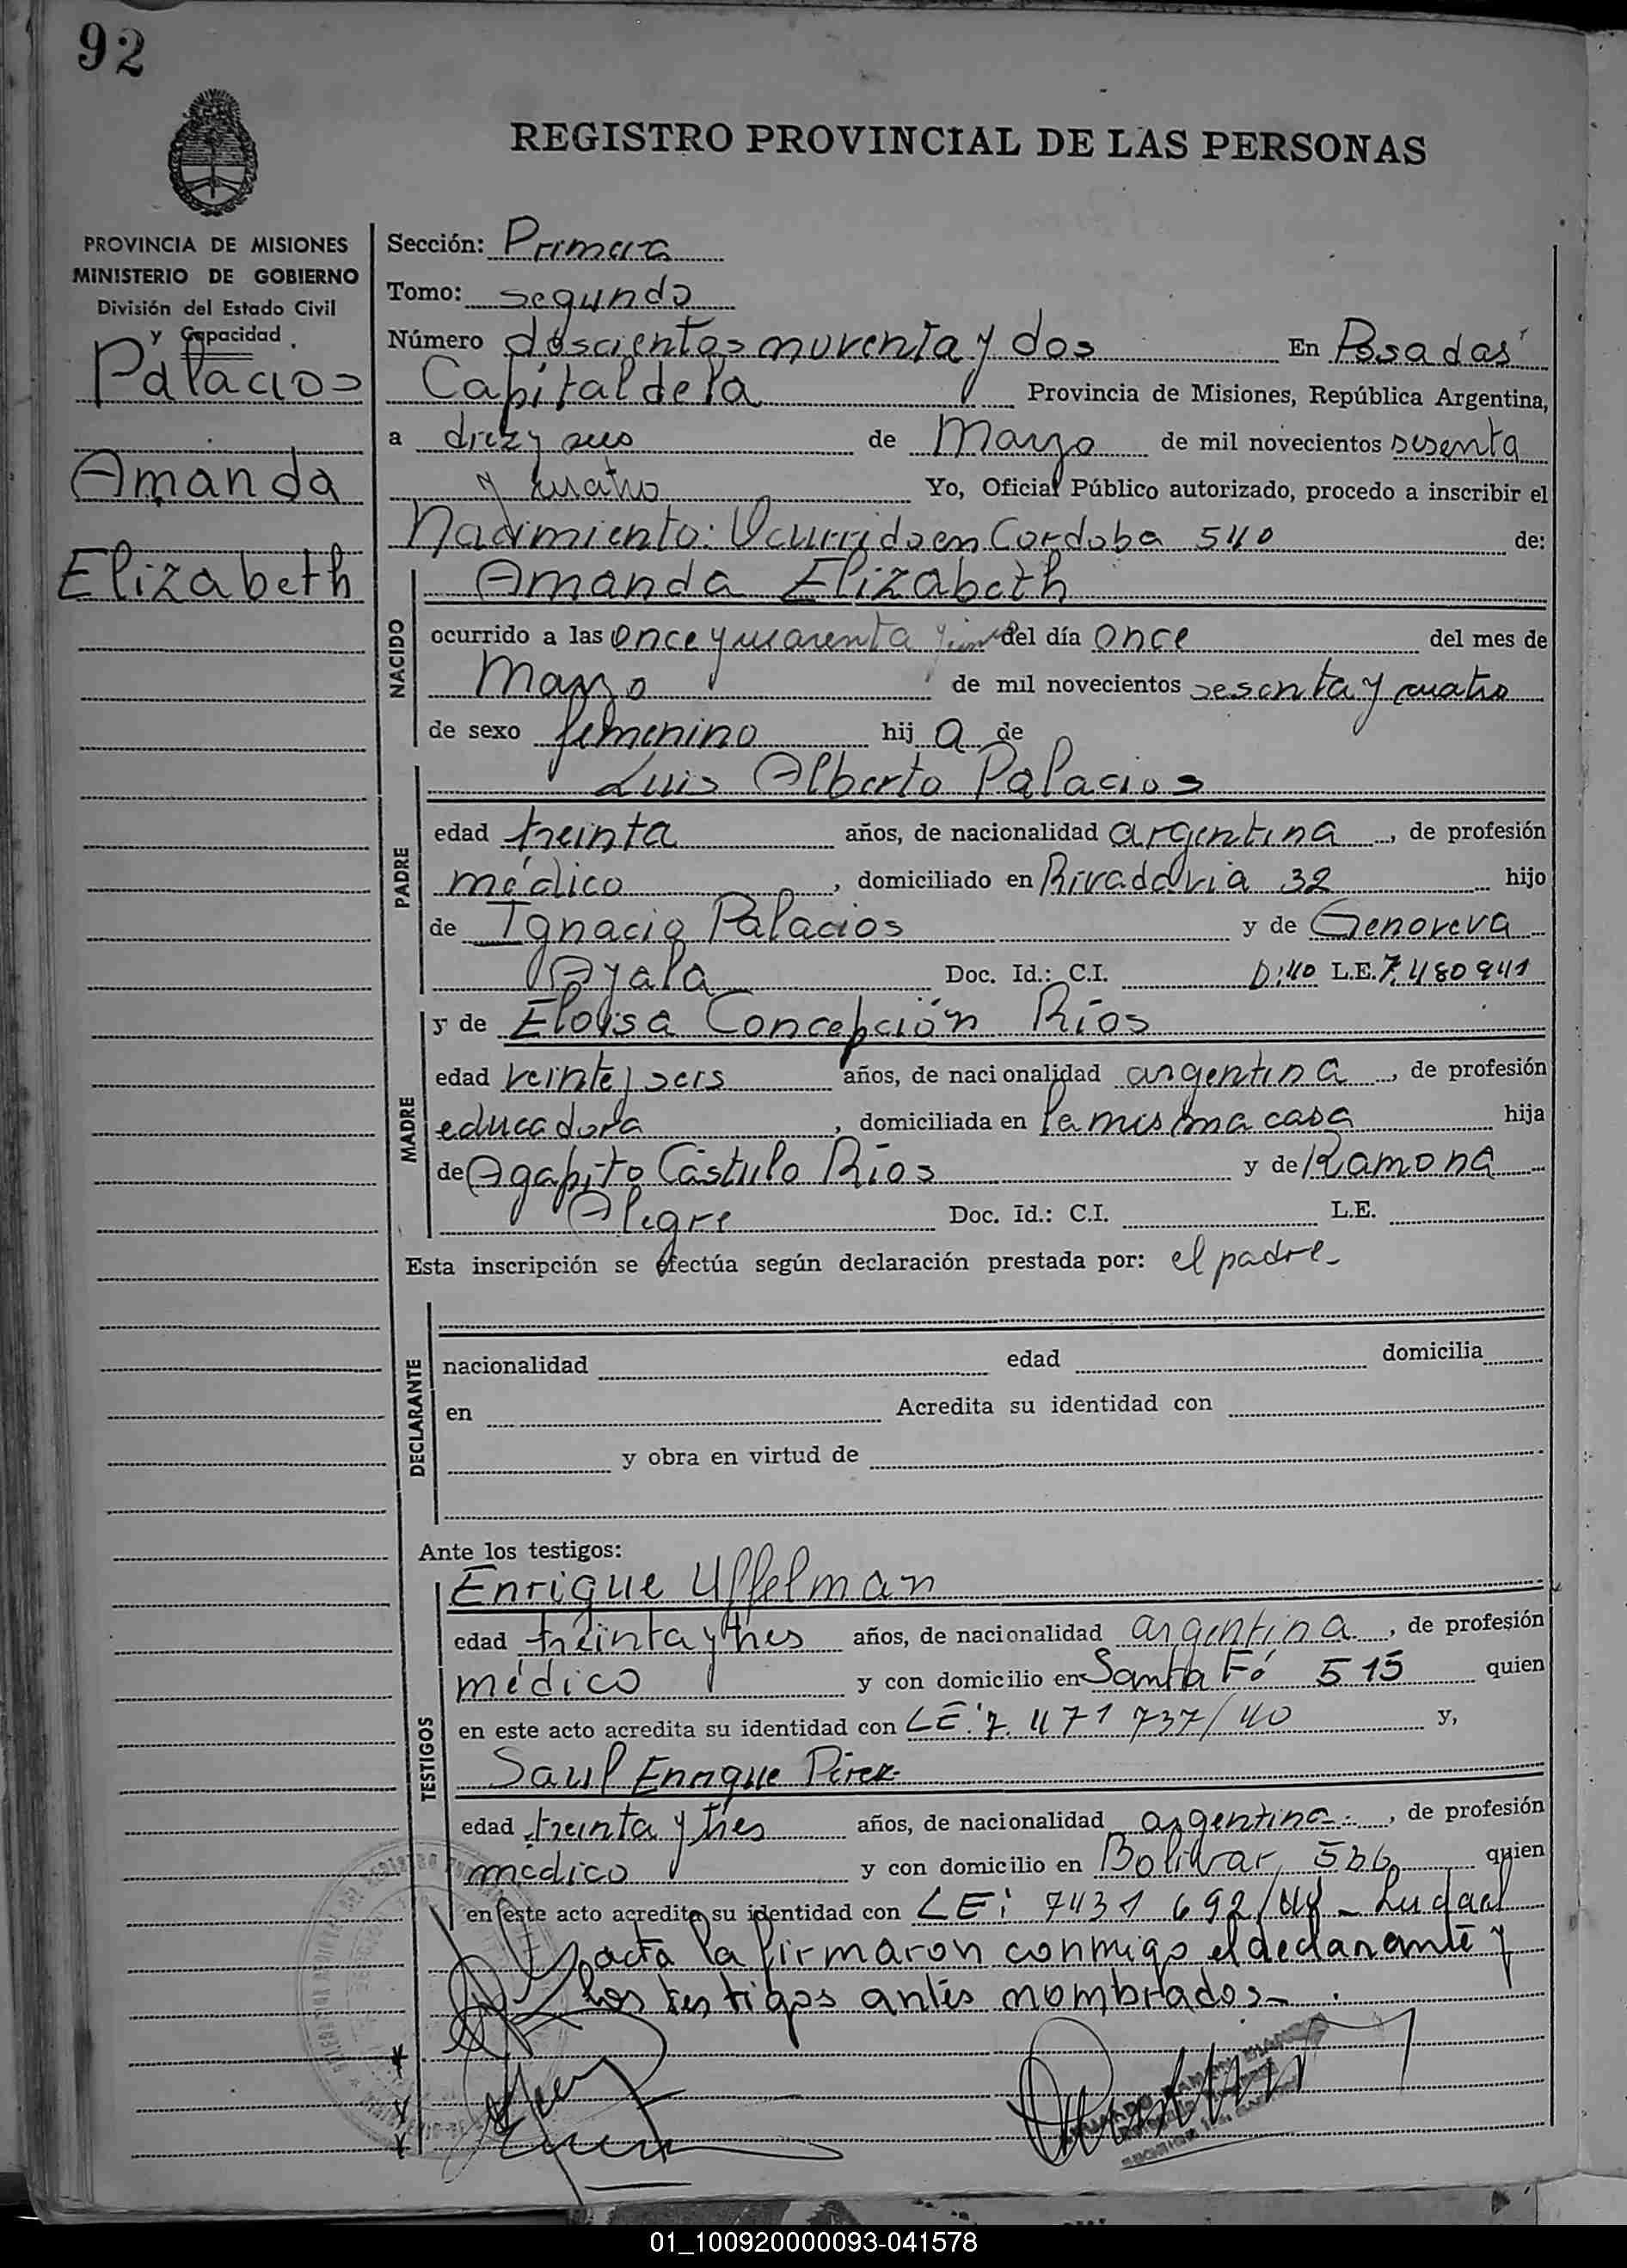 92
REGISTRO PROVINCIAL DE LAS PERSONAS
PROVINCIA DE MISIONES
MINISTERIO DE GOBIERNO
División del Estado Civil
y Capacidad
Palacios
Amanda
Elizabeth
Sección: Primera
Tomo: segundo
Número doscientos noventa y dos En Posadas
Capital de la Provincia de Misiones, República Argentina,
a diez y seis de Marzo de mil novecientos sesenta
y cuatro Yo, Oficial Público autorizado, procedo a inscribir el
Nacimiento: Ocurrido en Cordoba 540 de:
NACIDO
Amanda Elizabeth
ocurrido a las once y cuarenta y del día once del mes de
Marzo de mil novecientos sesenta y cuatro
de sexo femenino hij a de
PADRE
Luis Alberto Palacios
edad treinta años, de nacionalidad argentina, de profesión
médico, domiciliado en Rivadavia 32 hijo
de Ignacio Palacios y de Genoveva
Ayala Doc. Id.: C.I. D:40 L.E. 7.480941
MADRE
y de Eloisa Concepción Ríos
edad veinte y seis años, de nacionalidad argentina, de profesión
educadora, domiciliada en la misma casa hija
de Agapito Cástulo Ríos y de Ramona
Alegre Doc. Id.: C.I. L.E.
Esta inscripción se efectúa según declaración prestada por: el padre-
DECLARANTE
nacionalidad edad domicilia
en Acredita su identidad con
y obra en virtud de
Ante los testigos:
TESTIGOS
Enrique Uffelman
edad treinta y tres años, de nacionalidad argentina, de profesión
médico y con domicilio en Santa Fé 515 quien
en este acto acredita su identidad con LE: 7.471 737/40 y,
Saul Enrique Pérez
edad treinta y tres años, de nacionalidad argentina, de profesión
médico y con domicilio en Bolivar, 566 quien
en este acto acredita su identidad con LE: 7431 692/ - Leida el
acta la firmaron conmigo el declarante y
los testigos antes nombrados-
01_100920000093-041578